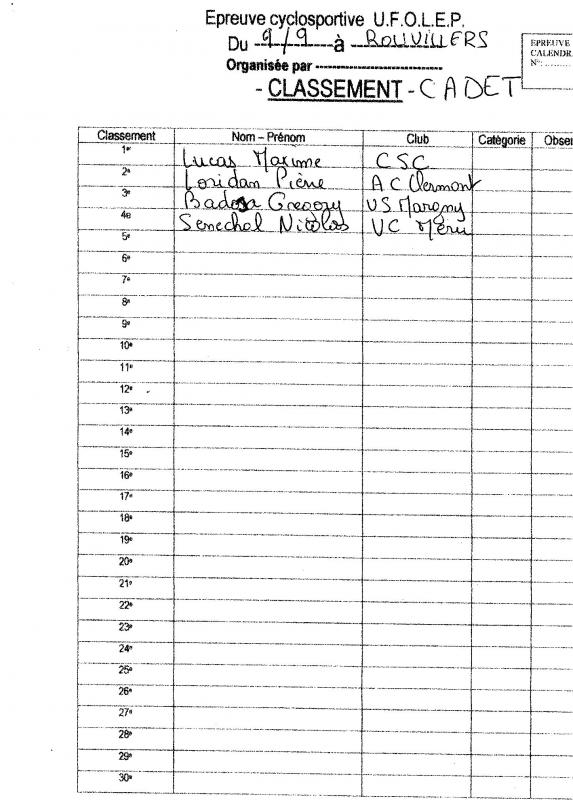 Epreuve cyclosportive U.F.O.L.E.P.
Du 9/9 à ROUVILLERS
EPREUVE
CALENDR
N°:
Organisée par
- CLASSEMENT - CADET
Classement Nom – Prénom Club Catégorie Obser
1er Lucas Maxime CSC
2e Loridan Pière AC Clermont
3e Badosa Gregory US Margny
4e Senechal Nicolas VC Méru
5e
6e
7e
8e
9e
10e
11e
12e
13e
14e
15e
16e
17e
18e
19e
20e
21e
22e
23e
24e
25e
26e
27e
28e
29e
30e